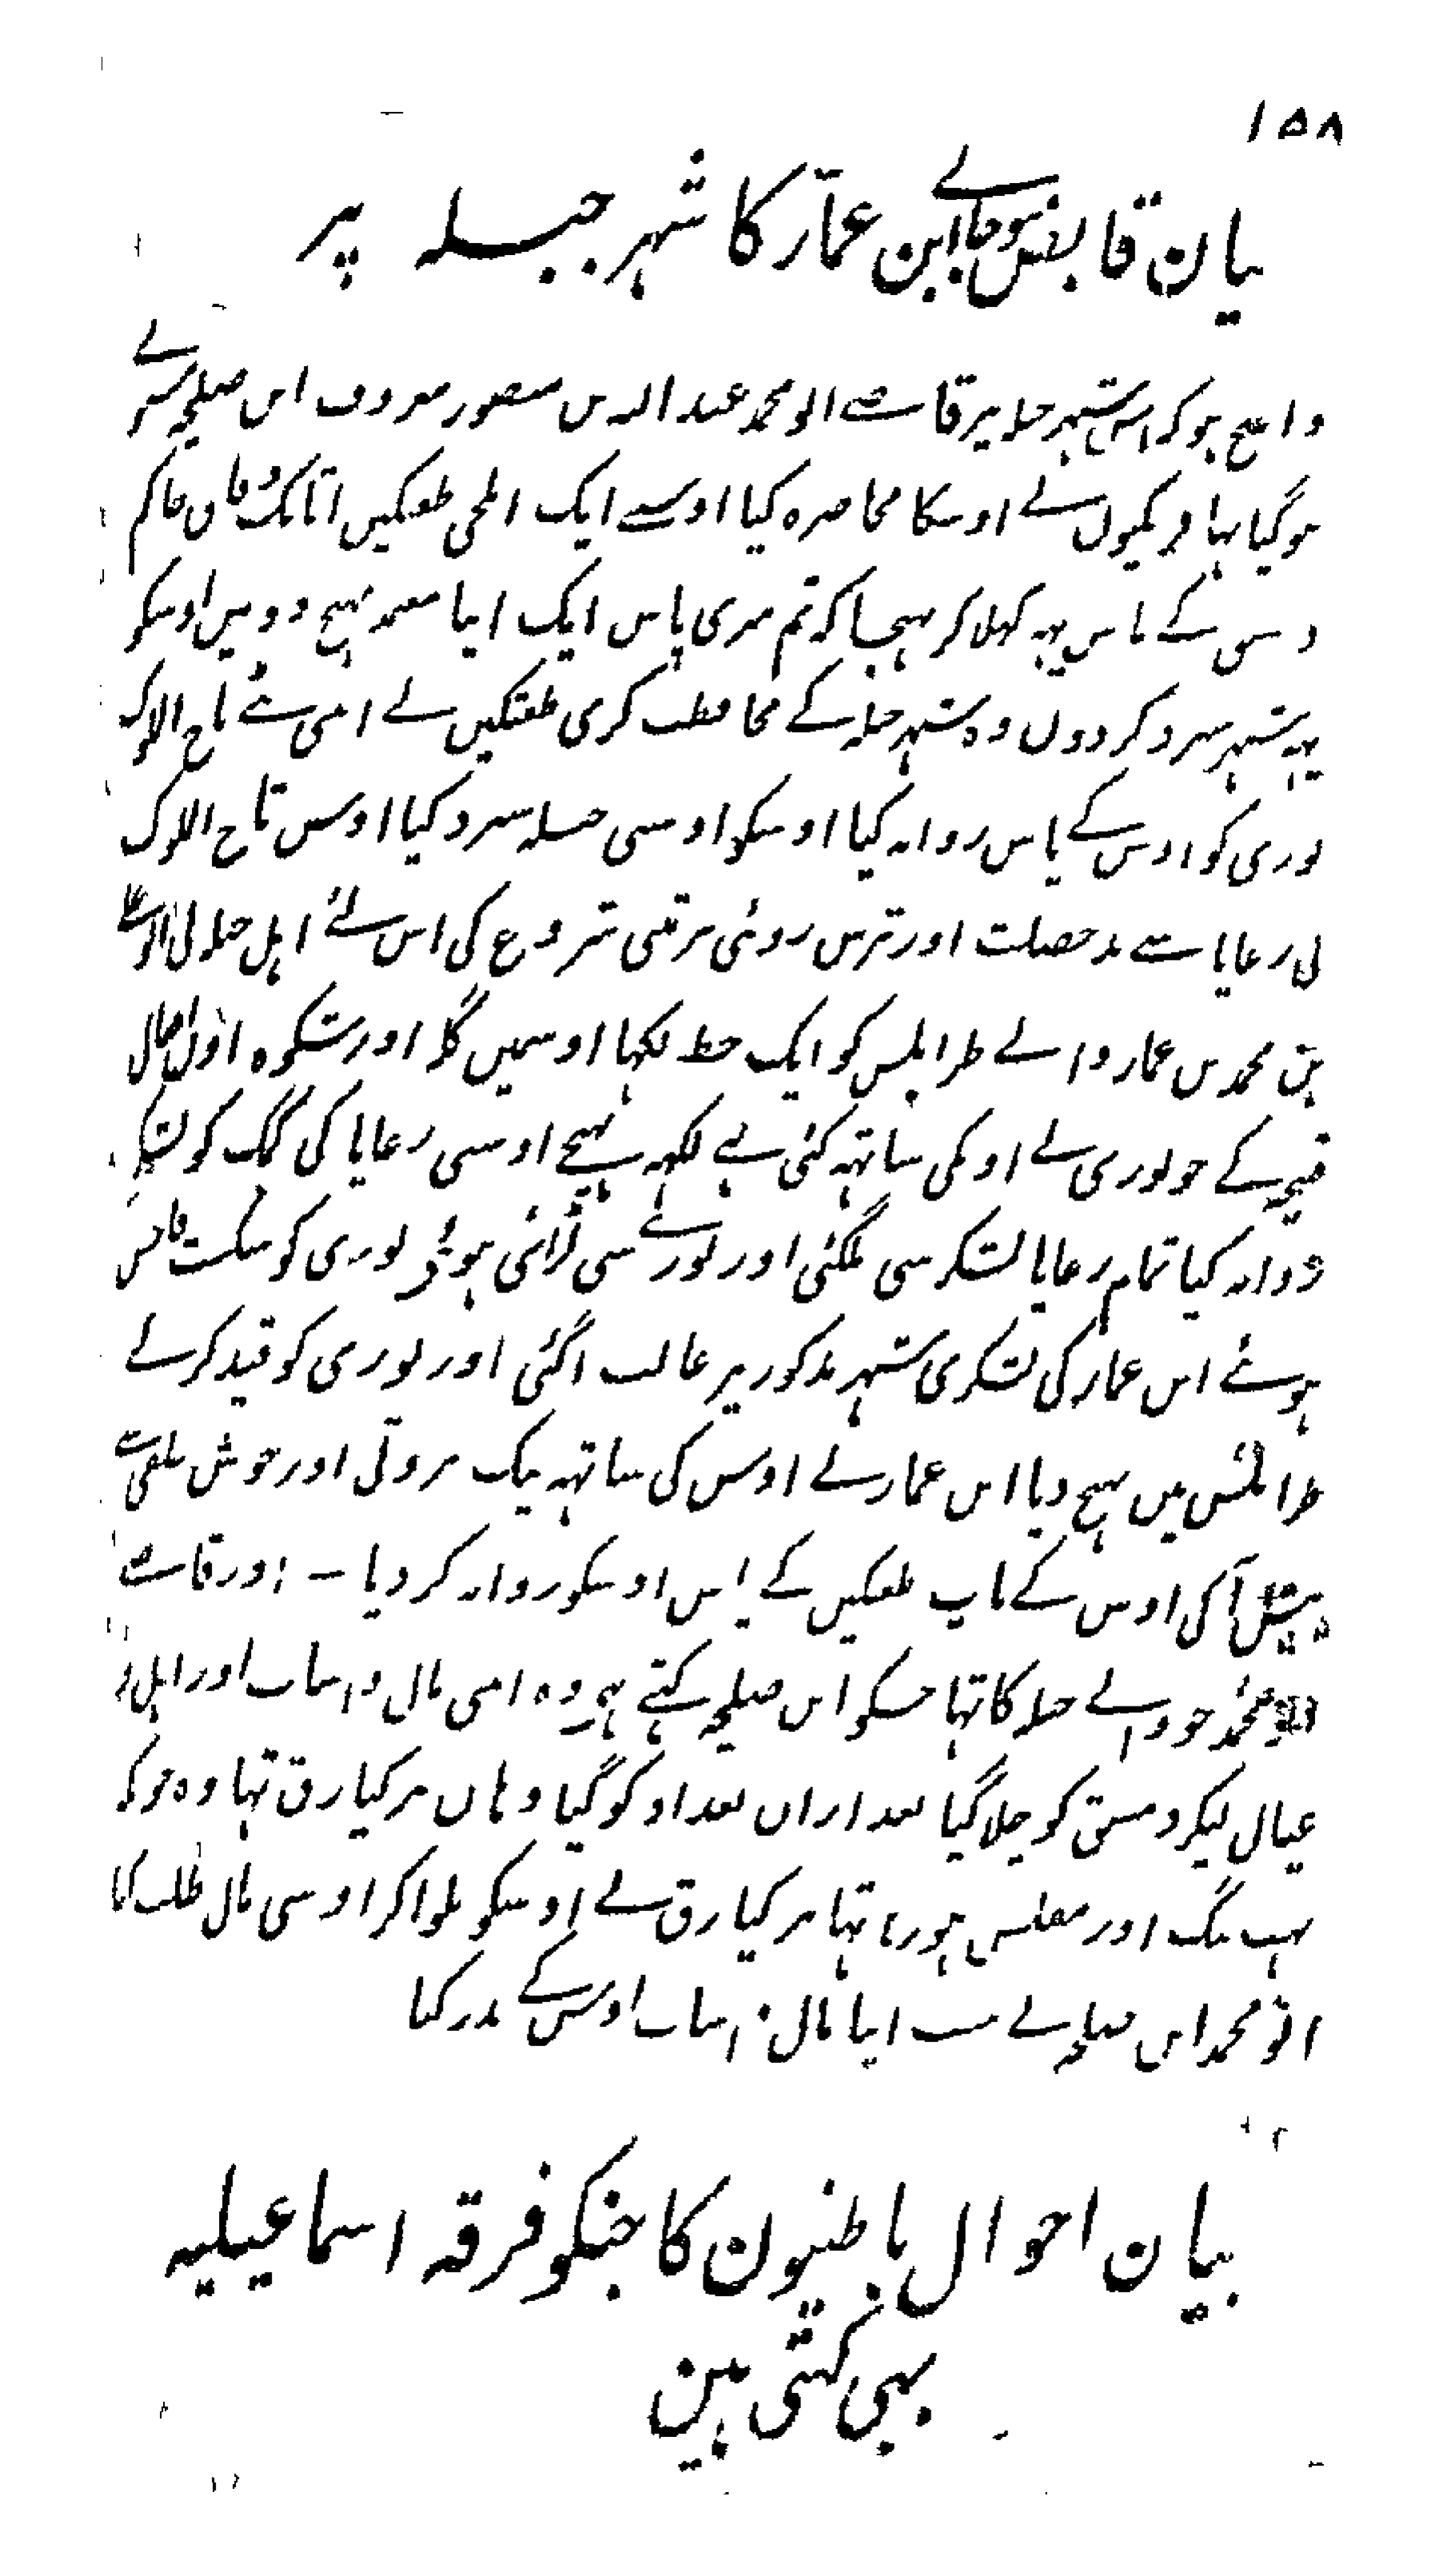 ۱۵۸
بیان قابض ہوجانے ابن عمّار کا شہر جبلہ پر
واضح ہو کہ اس شہر جبلہ پر قاضے ابو محمد عبد اللہ بن منصور معروف ابن صلیحہ
ہو گیا تہا فرنگیوں نے اوسکا محاصرہ کیا اوسنے ایک ایلچی طغتکین اتابک دقاق حاکم
دمشق کے پاس یہہ کہلا کر بہیجا کہ تم میری پاس ایک اپنا معتمد بہیج دو میں اوسکو
یہہ شہر سپرد کر دوں وہ شہر جبلہ کے محافظت کری طغتکین نے اپنی بیٹے تاج الملوک
بوری کو اوس کے پاس روانہ کیا اوسکو اوسی جبلہ سپرد کیا اوس تاج الملوک
نی رعایا سے بد خصلت اور ترش روئی برتنی شروع کی اس لئے اہل جبلہ نی
بن محمد بن عمار والے طرابلس کو ایک خط لکہا اوسمیں گلہ اور شکوہ اون افعال
قبیحہ کے جو بوری نے اونکی ساتہہ کئی ہے لکہہ بہیجے اوسی رعایا کی کمک کو لشکر
روانہ کیا تمام رعایا لشکر سی ملگئی اور بورے سی لڑائی ہوئی بوری کو شکست فاحش
ہوئے ابن عمار کی لشکری شہر مذکور پر غالب اگئی اور بوری کو قید کرکے
طرابلس میں بہیج دیا ابن عمار نے اوس کی ساتہہ نیک مروتی اور خوش خلقی سے
پیش آکی اوس کے باپ طغتکین کے پاس اوسکو روانہ کر دیا – اور قاضے
ابو محمد جو والے جبلہ کا تہا جسکو ابن صلیحہ کہتے ہے وہ اپنی مال و اسباب اور اہل و
عیال لیکر دمشق کو چلا گیا بعد ازاں بغداد کو گیا وہاں برکیارق تہا وہ جو کہ
بہت تنگ اور مفلس ہو رہا تہا برکیارق نے اوسکو بلوا کر اوسی مال طلب کیا
ابو محمد ابن صلیحہ نے سب اپنا مال و اسباب اوس کے نذر کیا
بیان احوال باطنیون کا جنکو فرقہ اسماعیلیہ
بہی کہتی ہین